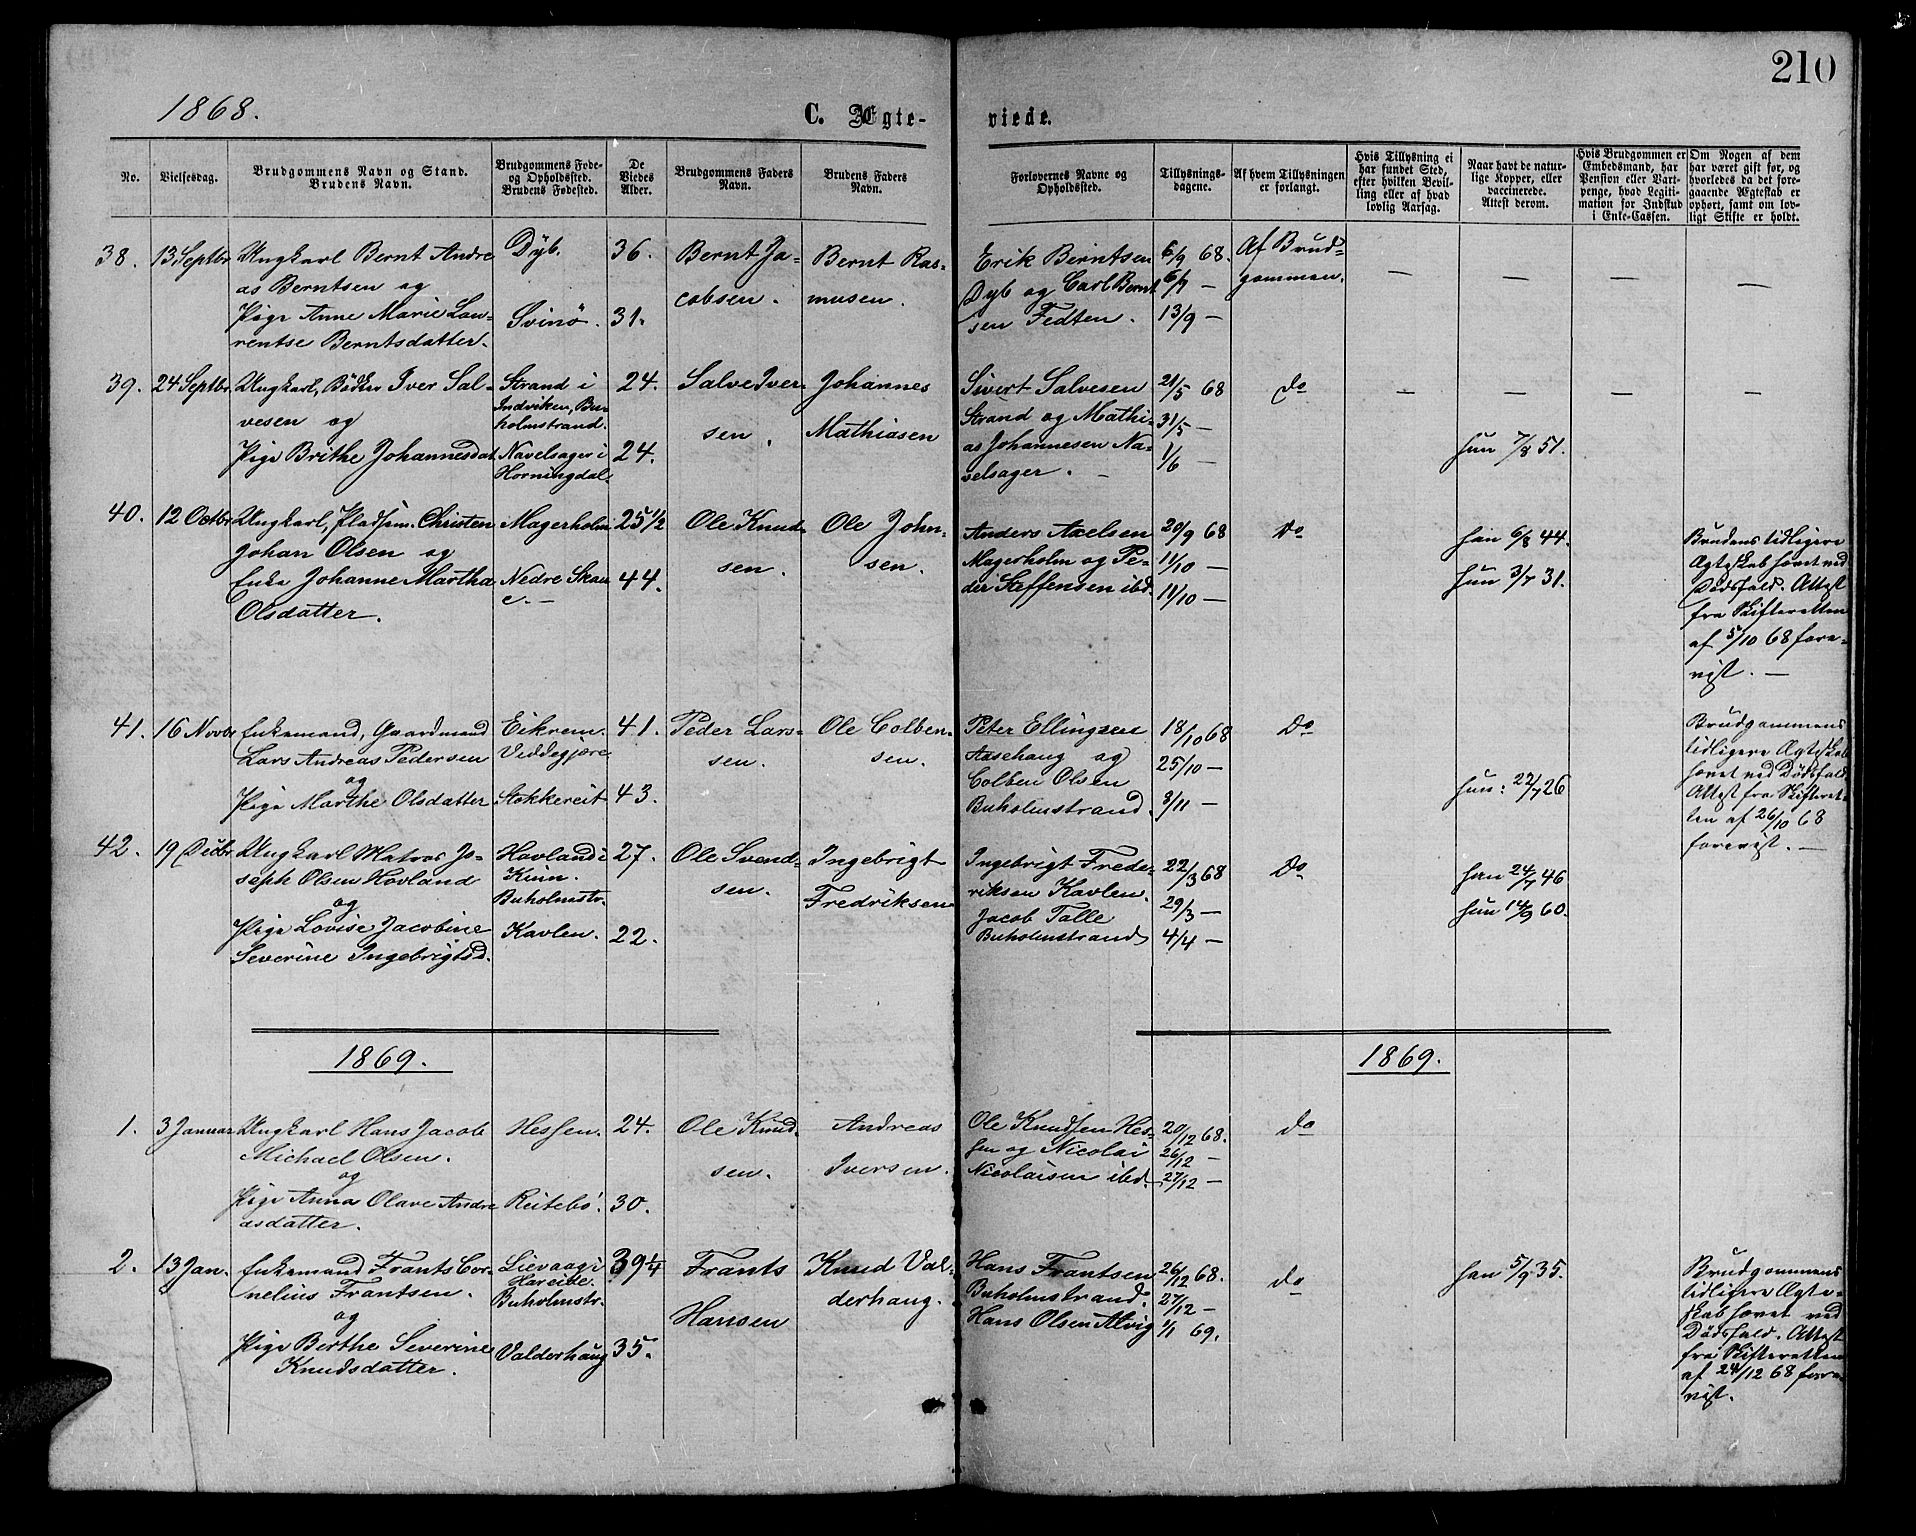 210
1868.
C. Ægte-
viede.
No.
Vielsesdag.
Brudgommens Navn og Stand.
Brudens Navn.
Brudgommens Føde-
og Opholdssted.
Brudens Fødested.
De
Viedes
Alder.
Brudgommens Faders
Navn.
Brudens Faders
Navn.
Forlovernes Navne og
Opholdssted.
Tillysnings-
dagene.
Af hvem Tillysningen
er forlangt.
Hvis Tillysning ei
har fundet Sted,
efter hvilken Bevil-
ling eller af hvad
lovlig Aarsag.
Naar havt de natur-
lige Kopper, eller
vaccinerede.
Attest derom.
Hvis Brudgommen er
Embedsmand, har
Pension eller Vart-
penge, hvad Legiti-
mation for Indskud
i Enke-Cassen.
Om Nogen af dem
har været gift før, og
hvorledes da det fore-
gaaende Ægteskab er
ophørt, samt om lov-
ligt Skifte er holdt.
38.
13 Septbr
Ungkarl Bernt Andre
as Berntsen og
Pige Anne Marie Lau-
rentse Berntsdatter.
Dyb.
Svinø.
36.
31.
Bernt Ja-
cobsen.
Bernt Ras-
musen.
Erik Berntsen
Dyb og Carl Bernt
sen Fedten.
6/9 68.
6/9 —
13/9 —
Af Brud
gommen.
—
—
—
—
39.
24 Septbr
Ungkarl, Bødker Iver Sal-
vesen og
Pige Brithe Johannesdat
Strand i
Indviken, Bu-
holmstrand.
Navelsager i
Horningdal.
24.
24.
Salve Iver-
sen.
Johannes
Mathiasen
Sivert Salvesen
Strand og Mathi-
as Johannesen Na-
velsager. —
21/5 68
31/5 —
1/6 —
Do
—
—
—
—
hun 7/8 51.
40.
12 Octbr
Ungkarl, Pladsm. Christen
Johan Olsen og
Enke Johanne Martha
Olsdatter.
Magerholm
Nedre Skau
e. —
25 1/2
44.
Ole Knud-
sen.
Ole John-
sen.
Anders Axelsen
Magerholm og Pe-
der Steffensen ibd.
20/9 68
11/10 —
11/10 —
Do
han 6/8 44.
hun 3/7 31.
Brudens tidligere
Ægteskab hævet ved
Dødsfald. Attest
fra Skifteretten
af 5/10 68 fore-
vist. —
41.
16 Novbr
Enkemand, Gaardmand
Lars Andreas Pedersen
og
Pige Marthe Olsdatter
Eikrem.
Viddegjære
Stokkereit
41.
43.
Peder Lars-
sen.
Ole Colben-
sen.
Peter Ellingsen
Aasehaug og
Colben Olsen
Buholmstrand.
18/10 68
25/10 —
3/11 —
Do
hun: 22/7 26
Brudgommens
tidligere Ægteskab
hævet ved Dødsfald
Attest fra Skifteret-
ten af 26/10 68
forevist. —
42.
19 Decbr
Ungkarl Matros Jo-
seph Olsen Hovland
og
Pige Lovise Jacobine
Severine Ingebrigtsd.
Havland i
Kinn.
Buholmstr.
Kavlen.
27.
22.
Ole Svend-
sen.
Ingebrigt
Fredriksen
Ingebrigt Frede-
riksen Kavlen.
Jacob Talle
Buholmstrand
22/3 68
29/3 —
4/4 —
Do
han 24/7 46
hun 14/9 60.
1869.
1869.
1.
3 Januar
Ungkarl Hans Jacob
Michael Olsen.
og
Pige Anna Olave Andre
asdatter.
Hessen.
Reitebø.
24.
30.
Ole Knud-
sen.
Andreas
Iversen.
Ole Knudsen Hes-
sen og Nicolai
Nicolaisen ibd.
20/12 68.
26/12 —
27/12 —
do
2.
13 Jan.
Enkemand Frants Cor-
nelius Frantsen.
og
Pige Berthe Severine
Knudsdatter.
Lievaag i
Hareide.
Buholmstr.
Valderhaug
39 1/4
35.
Frants
Hansen
Knud Val-
derhaug.
Hans Frantsen
Buholmstrand.
Hans Olsen Alvig
26/12 68.
27/12 —
1/1 69.
do
han 5/9 35.
Brudgommens
tidligere Ægte-
skab hævet ved
Dødsfald. Attest
fra Skifteretten
af 24/12 68 fore-
vist.